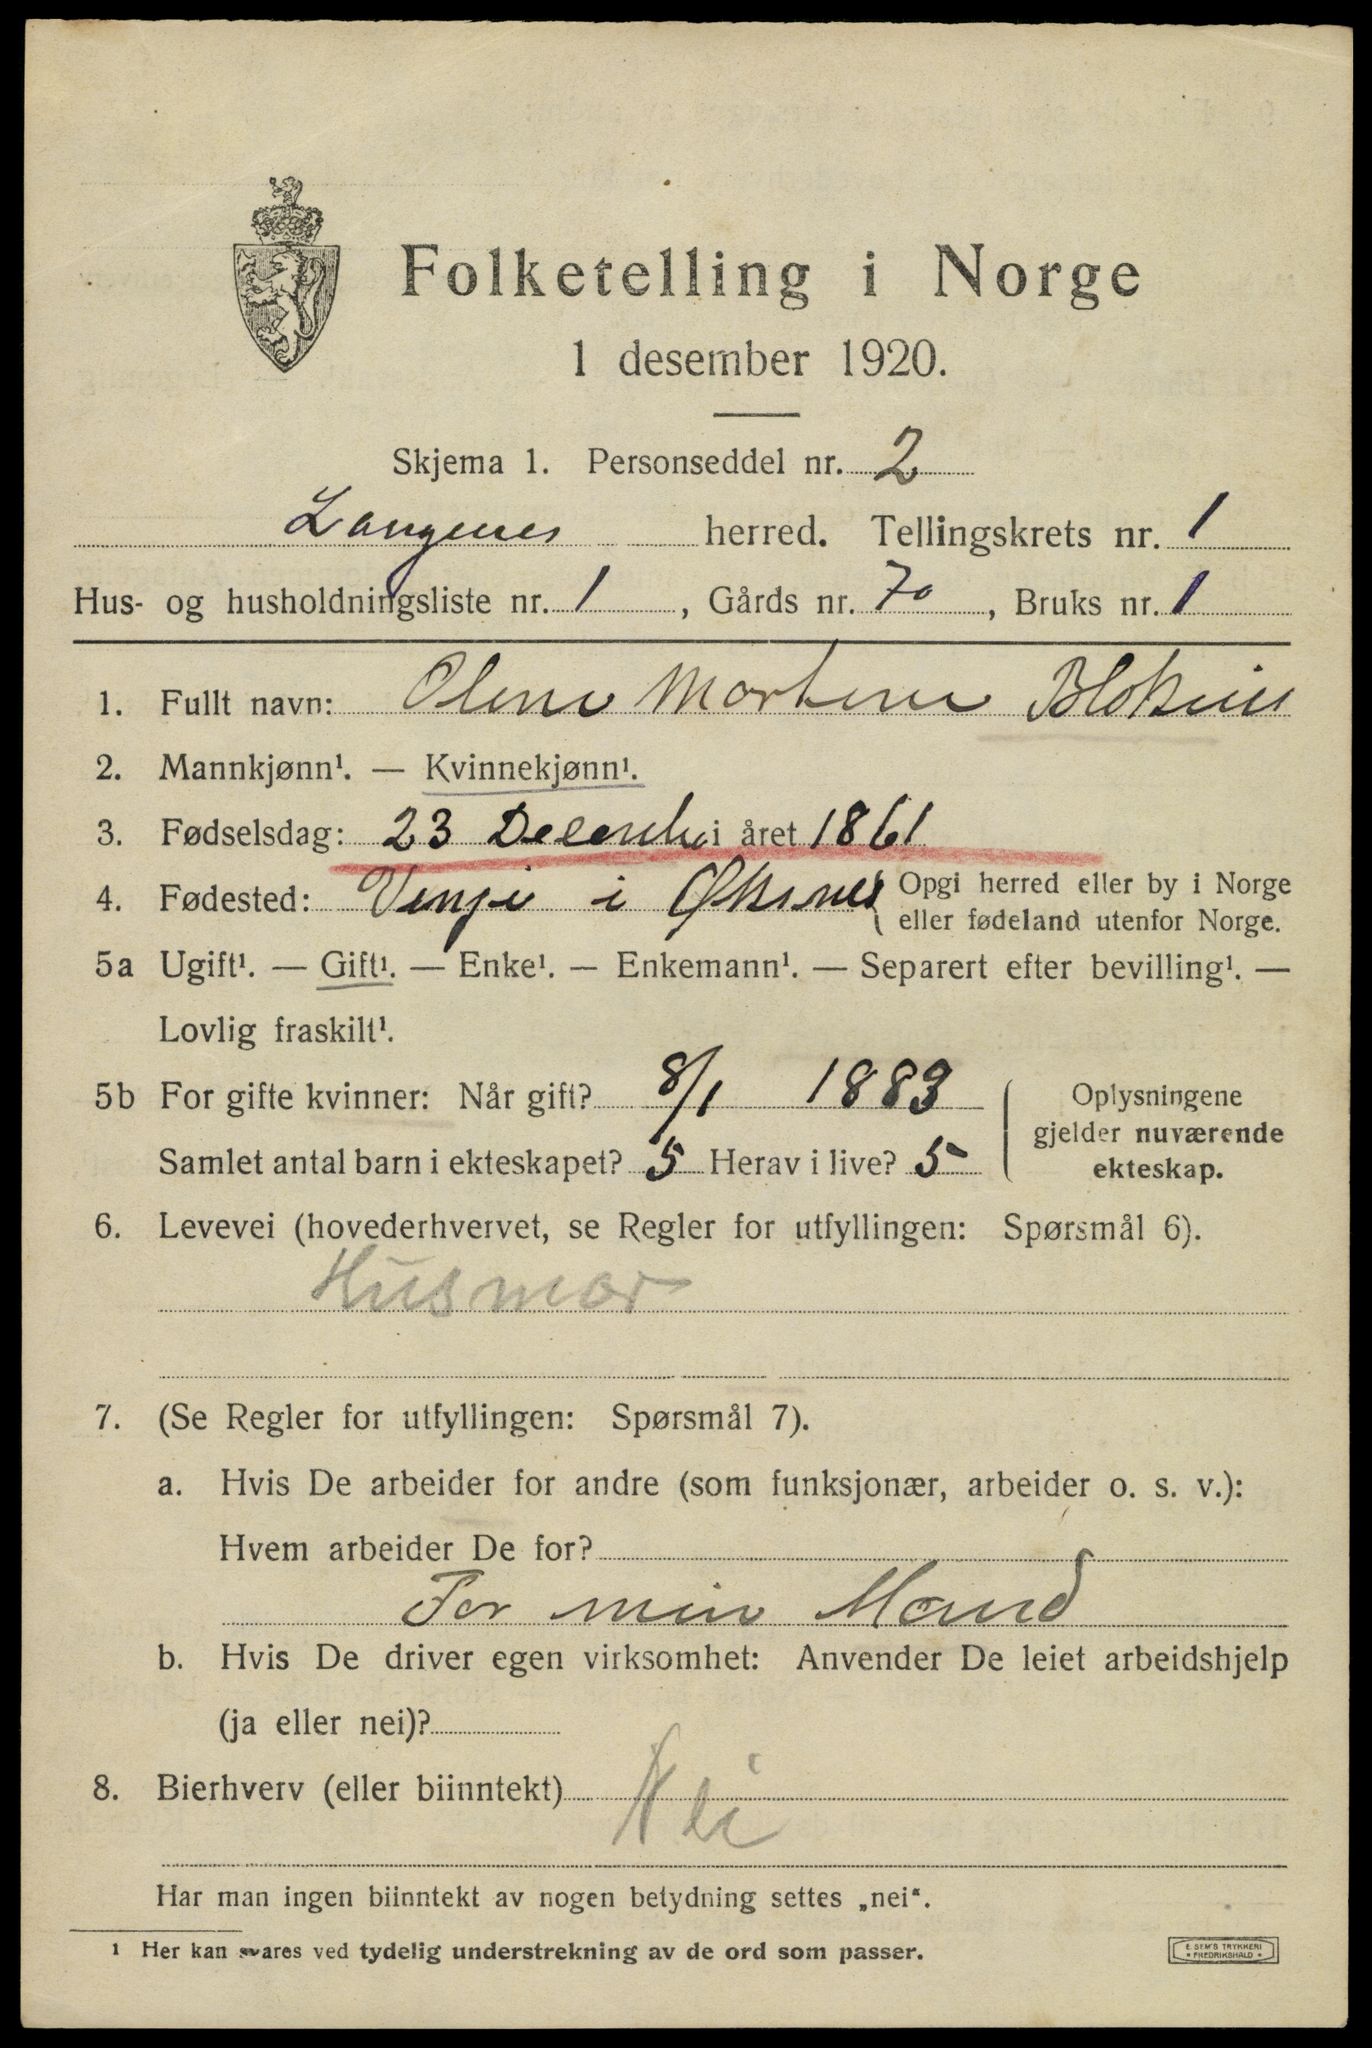 Folketelling i Norge
1 desember 1920.
Skjema 1. Personseddel nr. 2
Langenes herred. Tellingskrets nr. 1
Hus- og husholdningsliste nr. 1, Gårds nr. 70, Bruks nr. 1
1. Fullt navn: Olene Martene
2. Mannkjønn¹. — Kvinnekjønn¹.
3. Fødselsdag: 23 Decembr i året 1861
4. Fødested: i Øksnes { Opgi herred eller by i Norge
eller fødeland utenfor Norge.
5a Ugift¹. — Gift¹. — Enke¹. — Enkemann¹. — Separert efter bevilling¹. —
Lovlig fraskilt¹.
5b For gifte kvinner: Når gift? 8/1 1883
Samlet antal barn i ekteskapet? 5 Herav i live? 5
Oplysningene
gjelder nuværende
ekteskap.
6. Levevei (hovederhvervet, se Regler for utfyllingen: Spørsmål 6).
Husmor
7. (Se Regler for utfyllingen: Spørsmål 7).
a. Hvis De arbeider for andre (som funksjonær, arbeider o. s. v.):
Hvem arbeider De for?
For min Mand
b. Hvis De driver egen virksomhet: Anvender De leiet arbeidshjelp
(ja eller nei)?
8. Bierhverv (eller biinntekt) Nei
Har man ingen biinntekt av nogen betydning settes „nei“.
1 Her kan svares ved tydelig understrekning av de ord som passer.
E SEM'S TRYKKERI
* FREDRIKSHALD *